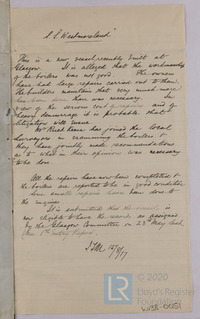 S.S. Westmoreland.
This is a new vessel, recently built at
Glasgow. It is alleged that the workmanship
of the boilers was not good. The owners
have had large repairs carried out to them.
The builders maintain that very much more
has been done than was necessary. In
view of the serious cost of repairs and of
heavy demurrage it is probable that
litigation will ensue.
Mr has joined the local
Surveyors in examining the boilers &
they have jointly made recommendations
as to what in their opinion was necessary
to be done.
All the repairs have now been completed &
the boilers are reported to be in good condition
small repairs have been done to
the engines.
It is submitted that the vessel is
now eligible to have the records as assigned
by the Glasgow Committee on 23rd May last,
© 2020
Lloyd's Register
Foundation
W138-0051